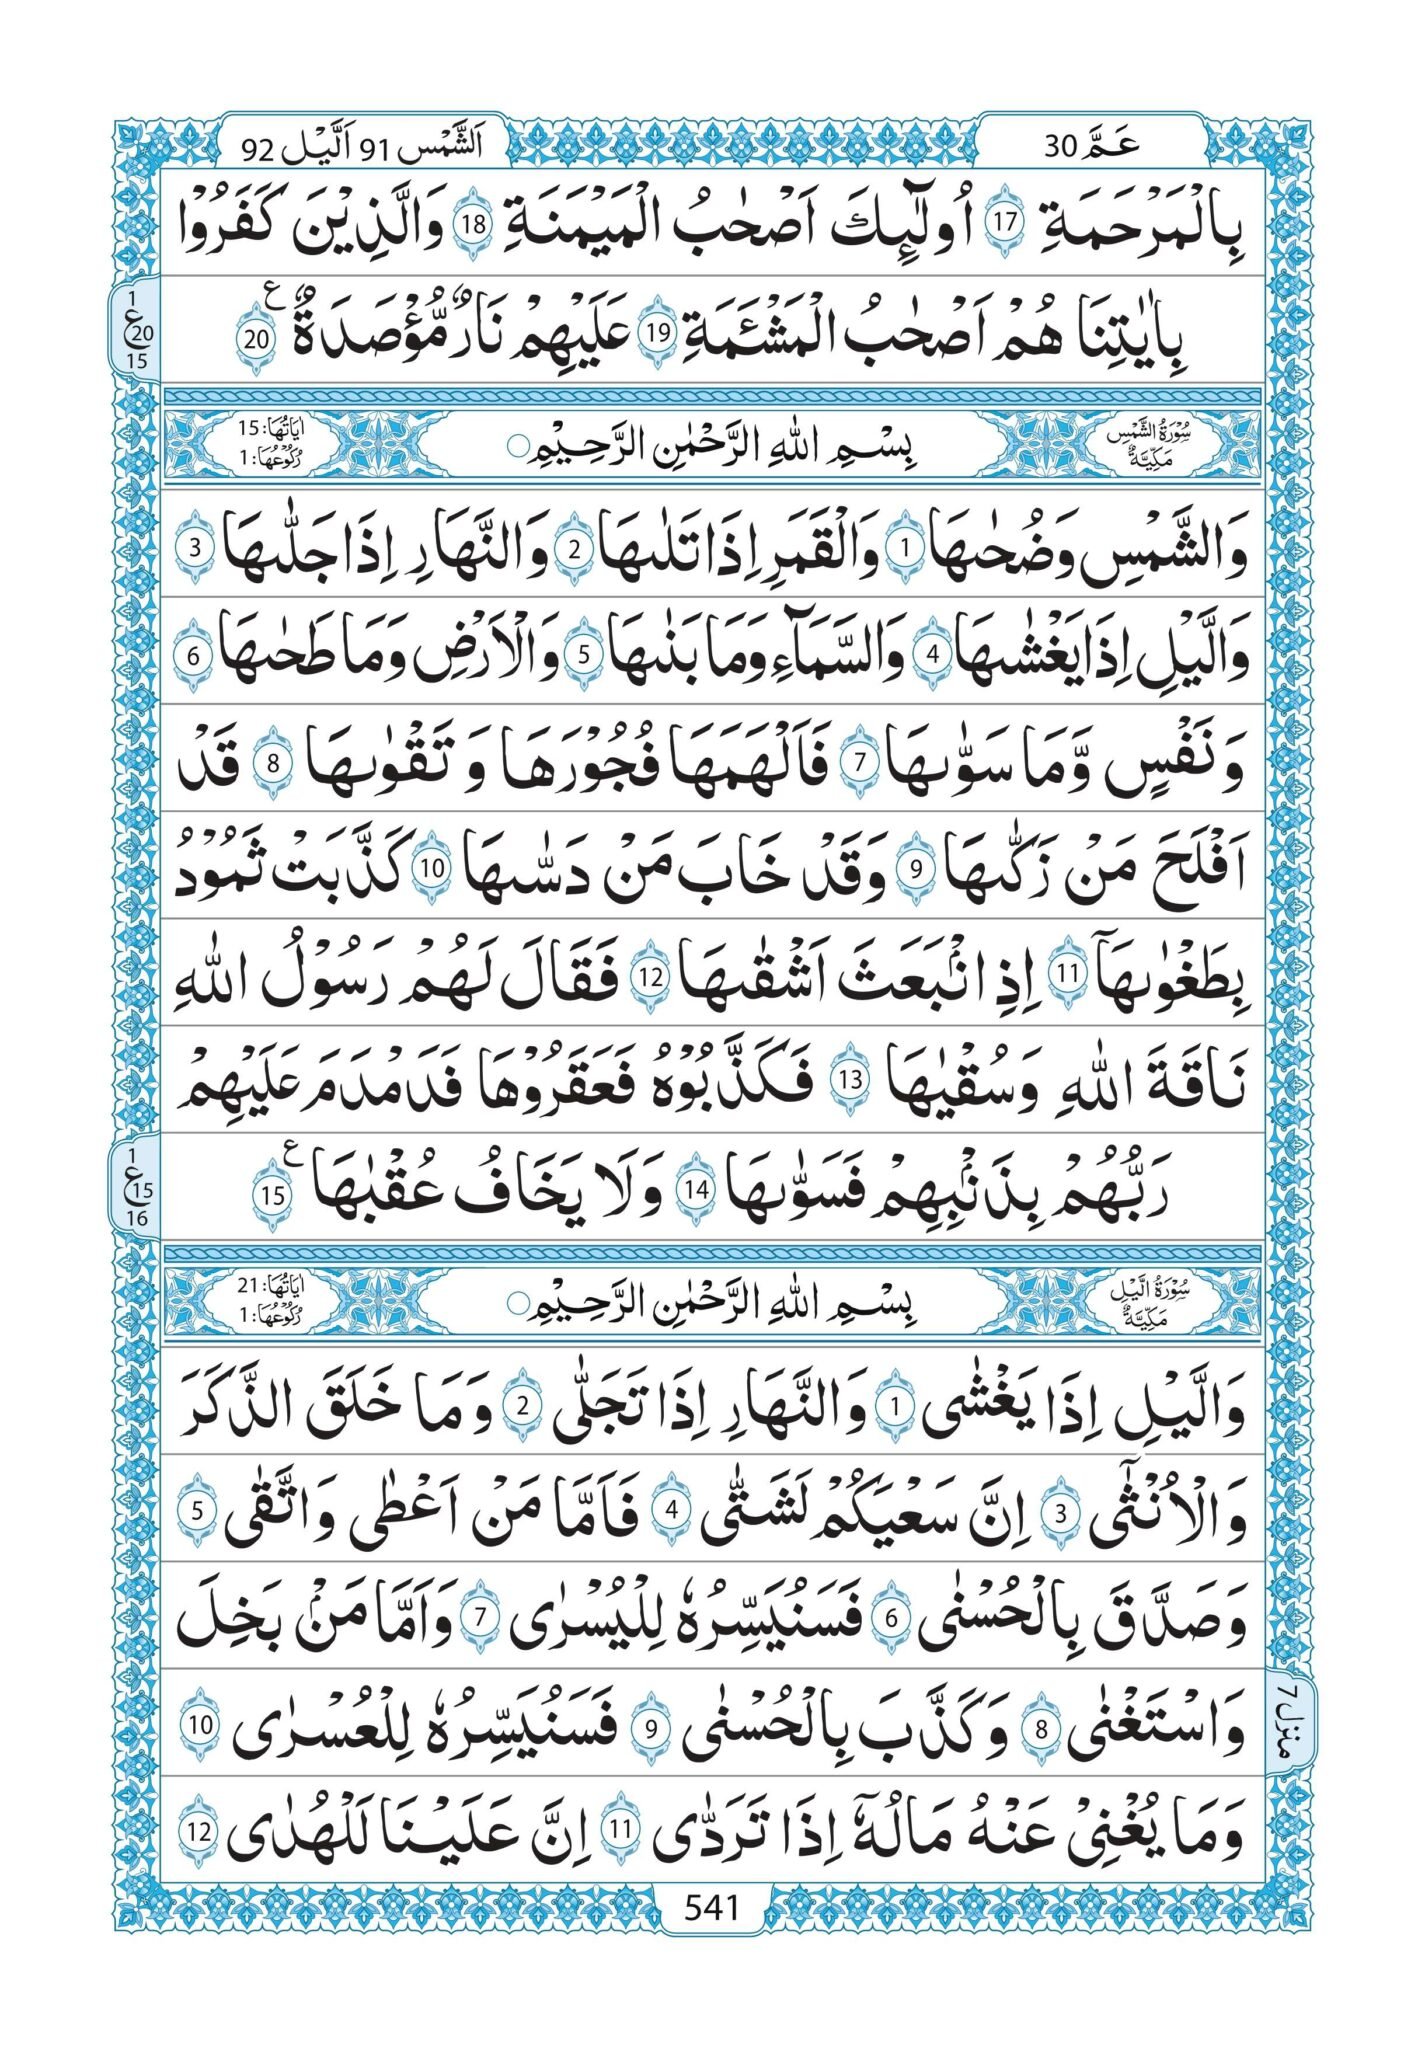 عَمَّ 30
اَلشَّمْس 91 اَلَّيْل 92
بِالْمَرْحَمَةِ 17 اُولٰٓئِكَ اَصْحٰبُ الْمَيْمَنَةِ 18 وَالَّذِيْنَ كَفَرُوْا
بِاٰيٰتِنَا هُمْ اَصْحٰبُ الْمَشْـَٔمَةِ 19 عَلَيْهِمْ نَارٌ مُّؤْصَدَةٌ 20 ع
1
ع 20
15
سُوْرَةُ الشَّمْسِ مَكِّيَّةٌ
بِسْمِ اللّٰهِ الرَّحْمٰنِ الرَّحِيْمِ
اٰيَاتُهَا: 15
رُكُوْعُهَا: 1
وَالشَّمْسِ وَضُحٰىهَا 1 وَالْقَمَرِ اِذَا تَلٰىهَا 2 وَالنَّهَارِ اِذَا جَلّٰىهَا 3
وَالَّيْلِ اِذَا يَغْشٰىهَا 4 وَالسَّمَآءِ وَمَا بَنٰىهَا 5 وَالْاَرْضِ وَمَا طَحٰىهَا 6
وَنَفْسٍ وَّمَا سَوّٰىهَا 7 فَاَلْهَمَهَا فُجُوْرَهَا وَتَقْوٰىهَا 8 قَدْ
اَفْلَحَ مَنْ زَكّٰىهَا 9 وَقَدْ خَابَ مَنْ دَسّٰىهَا 10 كَذَّبَتْ ثَمُوْدُ
بِطَغْوٰىهَآ 11 اِذِ انْۢبَعَثَ اَشْقٰىهَا 12 فَقَالَ لَهُمْ رَسُوْلُ اللّٰهِ
نَاقَةَ اللّٰهِ وَسُقْيٰهَا 13 فَكَذَّبُوْهُ فَعَقَرُوْهَا فَدَمْدَمَ عَلَيْهِمْ
رَبُّهُمْ بِذَنْۢبِهِمْ فَسَوّٰىهَا 14 وَلَا يَخَافُ عُقْبٰهَا 15 ع
1
ع 15
16
سُوْرَةُ الَّيْلِ مَكِّيَّةٌ
بِسْمِ اللّٰهِ الرَّحْمٰنِ الرَّحِيْمِ
اٰيَاتُهَا: 21
رُكُوْعُهَا: 1
وَالَّيْلِ اِذَا يَغْشٰى 1 وَالنَّهَارِ اِذَا تَجَلّٰى 2 وَمَا خَلَقَ الذَّكَرَ
وَالْاُنْثٰٓى 3 اِنَّ سَعْيَكُمْ لَشَتّٰى 4 فَاَمَّا مَنْ اَعْطٰى وَاتَّقٰى 5
وَصَدَّقَ بِالْحُسْنٰى 6 فَسَنُيَسِّرُهٗ لِلْيُسْرٰى 7 وَاَمَّا مَنْۢ بَخِلَ
وَاسْتَغْنٰى 8 وَكَذَّبَ بِالْحُسْنٰى 9 فَسَنُيَسِّرُهٗ لِلْعُسْرٰى 10
منزل 7
وَمَا يُغْنِيْ عَنْهُ مَالُهٗٓ اِذَا تَرَدّٰى 11 اِنَّ عَلَيْنَا لَلْهُدٰى 12
541